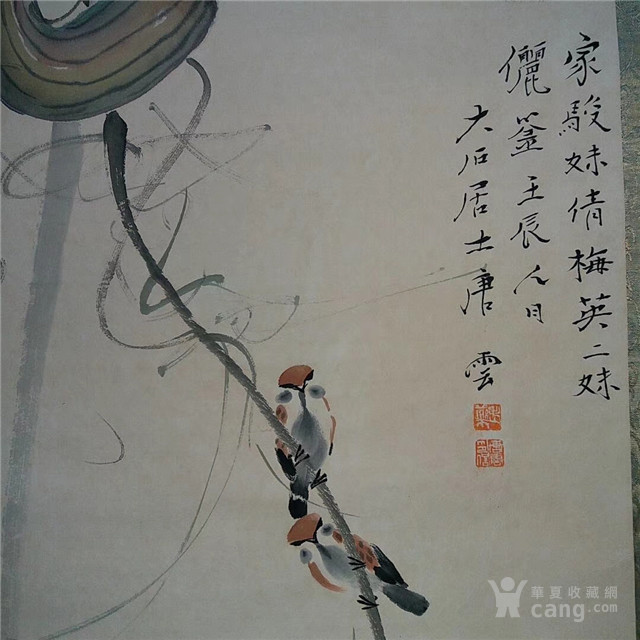 家駿妹倩梅英二妹
儷鉴壬辰八月
大石居士唐雲
華夏收藏網
cang.com